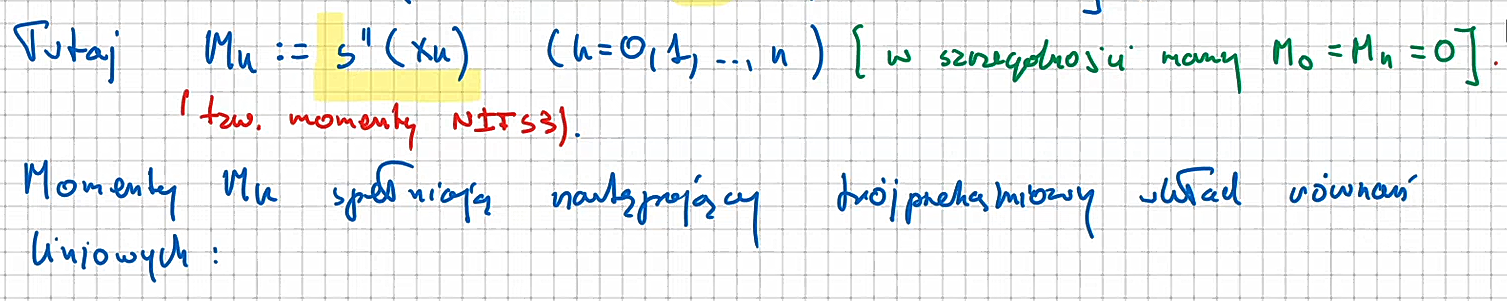 Tutaj M_k := s''(x_k) (k=0,1,...,n) [w szczególności mamy M_0 = M_n = 0].
(tzw. momenty NIFS3).
Momenty M_k spełniają następujący trójprzekątniowy układ równań
liniowych: